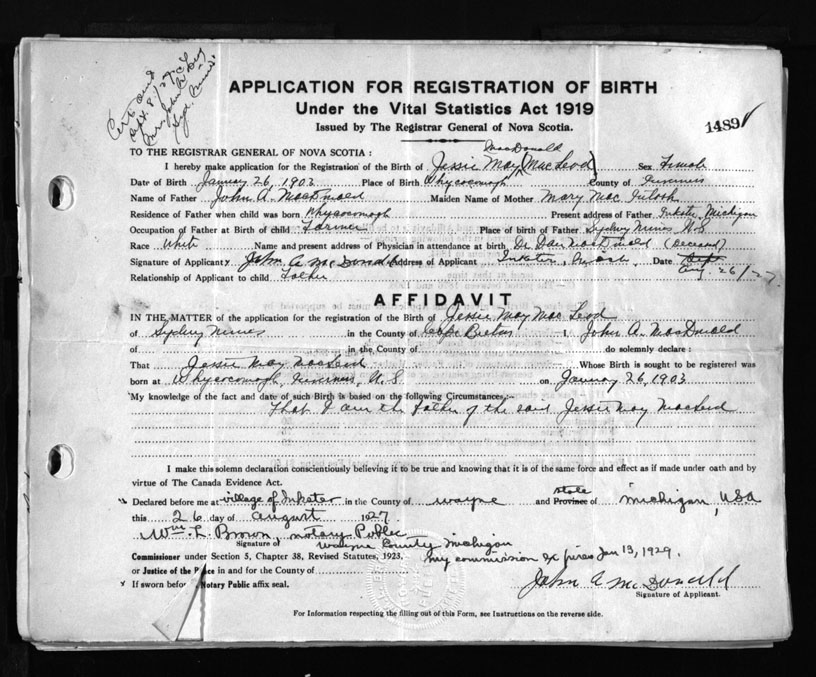 Cert. and
Sept. 8/27
Mrs John
Syd. Mines
APPLICATION FOR REGISTRATION OF BIRTH
Under the Vital Statistics Act 1919
Issued by The Registrar General of Nova Scotia.
1489
TO THE REGISTRAR GENERAL OF NOVA SCOTIA:
MacDonald
I hereby make application for the Registration of the Birth of Jessie May (MacLeod) Sex Female
Date of Birth January 26, 1903 Place of Birth Whycocomagh County of Inverness
Name of Father John A. MacDonald Maiden Name of Mother Mary Mac Intosh
Residence of Father when child was born Whycocomagh Present address of Father Inkster, Michigan
Occupation of Father at Birth of child Farmer Place of birth of Father Sydney Mines N.S.
Race White Name and present address of Physician in attendance at birth Dr. Dan MacDonald (deceased)
Signature of Applicant John A McDonald Address of Applicant Inkster, Mich Date Sept
Aug. 26/27.
Relationship of Applicant to child Father
AFFIDAVIT
IN THE MATTER of the application for the registration of the Birth of Jessie May Mac Leod
of Sydney Mines in the County of Cape Breton I, John A. MacDonald
of in the County of do solemnly declare:
That Jessie May MacLeod Whose Birth is sought to be registered was
born at Whycocomagh, Inverness, N.S on January 26, 1903
My knowledge of the fact and date of such Birth is based on the following Circumstances:-
That I am the father of the said Jessie May MacLeod
I make this solemn declaration conscientiously believing it to be true and knowing that it is of the same force and effect as if made under oath and by
virtue of The Canada Evidence Act.
Declared before me at village of Inkster in the County of Wayne and state Province of Michigan, USA
this 26 day of August 1927.
Wm. L. Brown, notary Public
Signature of Wayne County Michigan
Commissioner under Section 5, Chapter 38, Revised Statutes, 1923. my commission expires Jan 13, 1929.
or Justice of the Peace in and for the County of
x If sworn before Notary Public affix seal. John A McDonald
Signature of Applicant.
For Information respecting the filling out of this Form, see Instructions on the reverse side.